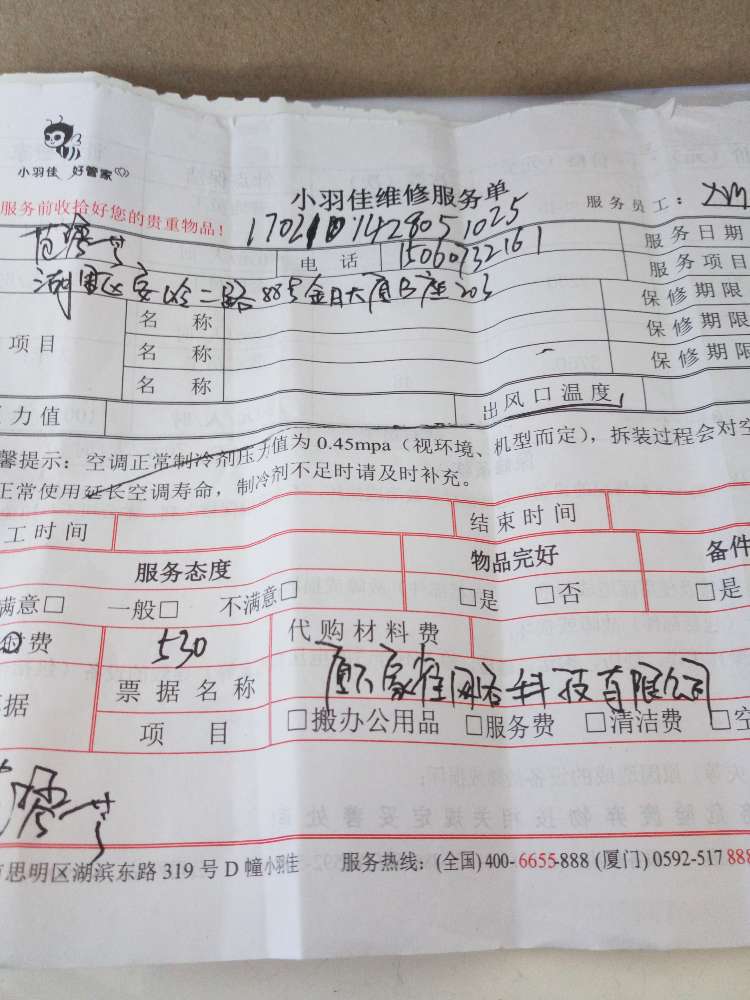 小羽佳 好管家
小羽佳维修服务单
服务员工：
服务前收拾好您的贵重物品！
电 话 15060732161
服务日期
湖里区安岭二路88号金月大厦B座203
服务项目
保修期限
项目 名 称
保修期限
名 称
保修期限
名 称
力值 出风口温度
馨提示：空调正常制冷剂压力值为0.45mpa（视环境、机型而定），拆装过程会对空
正常使用延长空调寿命，制冷剂不足时请及时补充。
工时间 结束时间
服务态度 物品完好 备件
满意□ 一般□ 不满意□ □是 □否 □是
费 530 代购材料费
据 票据名称 科技有限公司
项 目 □搬办公用品 □服务费 □清洁费 □空
思明区湖滨东路319号D幢小羽佳 服务热线：(全国)400-6655-888 (厦门) 0592-517 888